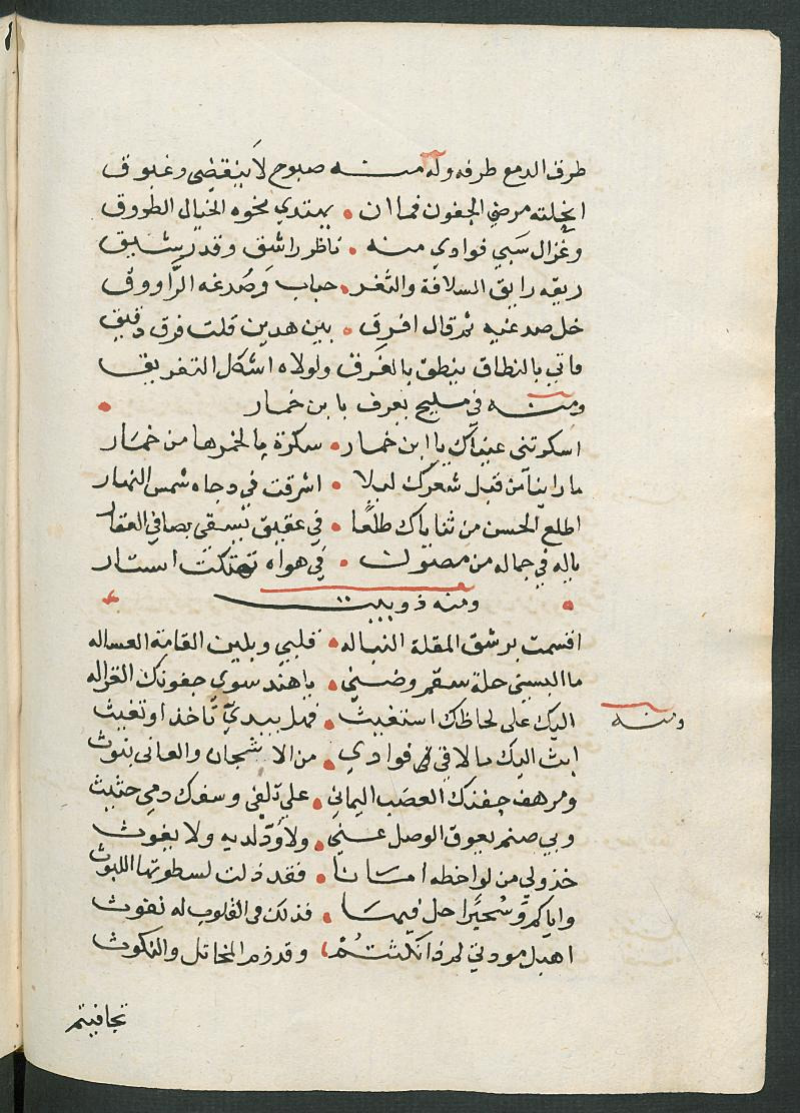 طرف الدمع طرفه وله منه صبوح لا ينقضي وغبوق
انحلته مرضى الجفون فما ان • يهتدي نحوه الخيال الطروق
وغزال سبي فوادي منه • ناظر راشق وقد رشيق
ريقه رايق السلافة والثغر • حباب وصدغه الراووق
حل صدغيه ثم قال افرق • بين هدين قلت فرق دقيق
فاتي بالنطاق ينطق بالفرق ولولاه اشكل التفريق
ومنه في مليح يعرف بابن خمار •
اسكرتني عيناك يا ابن خمار • سكرة يا لخمرها من خمار
ما راينا من قبل شعرك ليلا • اشرقت في دجاه شمس النهار
اطلع الحسن من ثناياك طلعا • في عقيق يسقي بصافي العقار
ياله في جماله من مصون • في هواه تهتكت استار
• ومنه ذوبيت
اقسمت برشق المقلة النباله • قلبي وبلين القامة العساله
ما البسني حلة سقم وضني • يا هند سوي جفونك الغزاله
ومنه
اليك على لحاظك استغيث • فهل بيدي تاخذ او تغيث
ابث اليك ما لاقي فوادي • من الاشجان والعاني يثوث
ومرهف جفنك العضب اليماني • علي تلفي وسفك دمي حثيث
وبي صنم يعوق الوصل عني • ولا ود لديه ولا يغوث
خذ ولي من لواحظه امانا • فقد ذلت لسطوتها الليوث
واياكم وسحيرا حل فيها • فذلك في القلوب له نفوث
اهيل مودتي لم ذا نكثتم • وقد ذم المخاتل والنكوث
تجافيتم